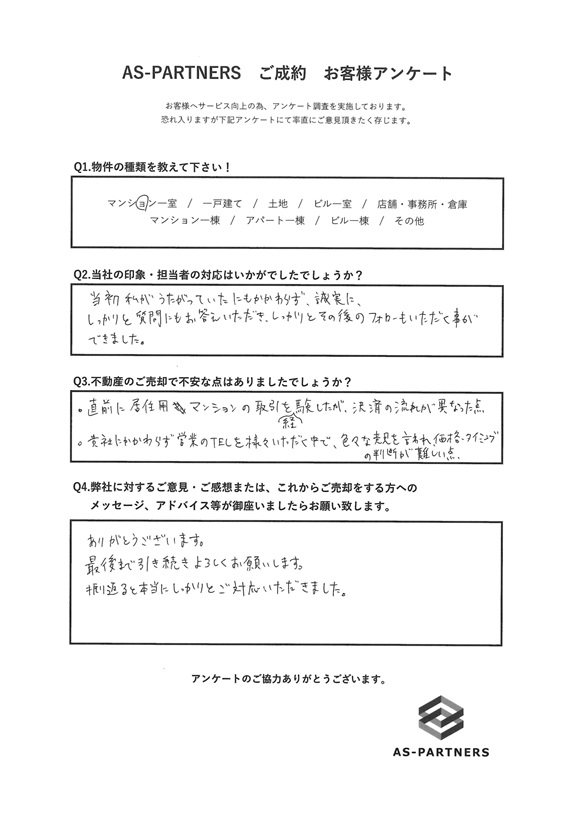 AS-PARTNERS ご成約 お客様アンケート
お客様へサービス向上の為、アンケート調査を実施しております。
恐れ入りますが下記アンケートにて率直にご意見頂きたく存じます。
Q1.物件の種類を教えて下さい！
マンション一室 / 一戸建て / 土地 / ビル一室 / 店舗・事務所・倉庫
マンション一棟 / アパート一棟 / ビル一棟 / その他
Q2.当社の印象・担当者の対応はいかがでしたでしょうか？
当初私がうたがっていたにもかかわらず、誠実に、
しっかりと質問にもお答えいただき、しっかりとその後のフォローもいただく事が
できました。
Q3.不動産のご売却で不安な点はありましたでしょうか？
・直前に居住用マンションの取引を経験したが、決済の流れが異なった点
・貴社にかかわらず営業のTELを様々いただく中で、色々な意見を言われ、価格・タイミング
の判断が難しい点。
Q4.弊社に対するご意見・ご感想または、これからご売却をする方への
メッセージ、アドバイス等が御座いましたらお願い致します。
ありがとうございます。
最後まで引き続きよろしくお願いします。
振返ると本当にしっかりとご対応いただきました。
アンケートのご協力ありがとうございます。
AS-PARTNERS